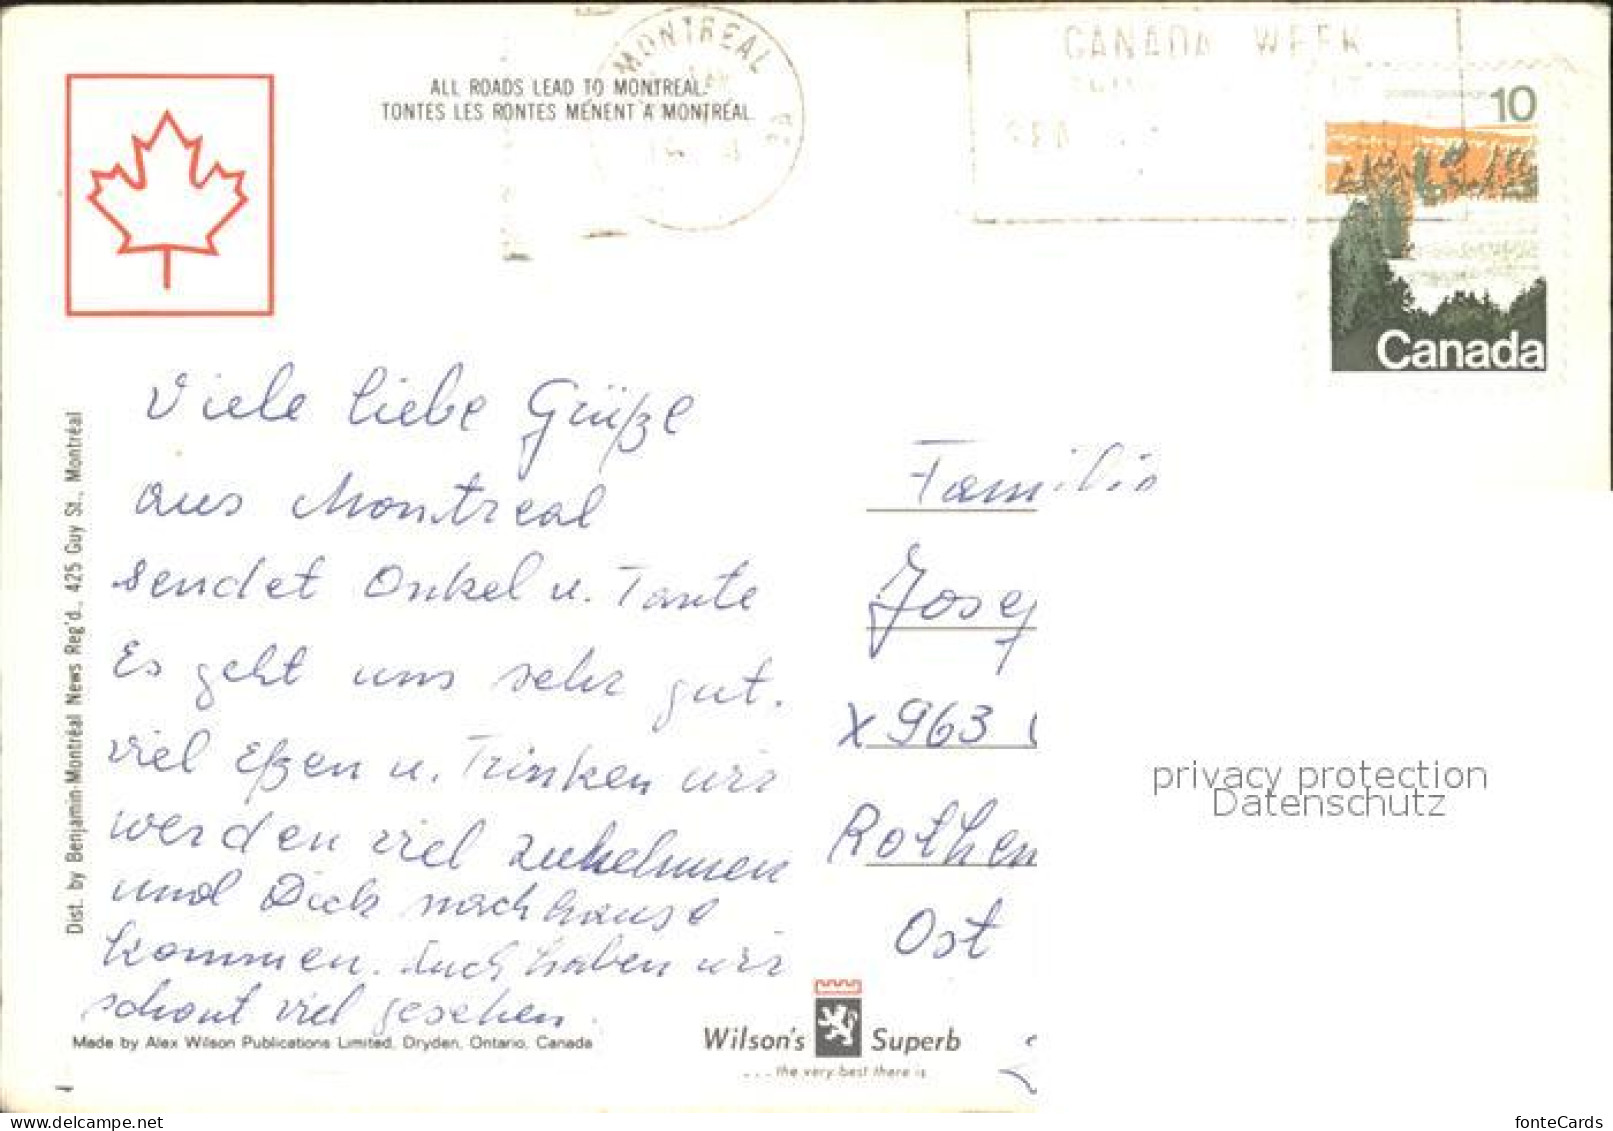 MONTREAL
CANADA WEEK
ALL ROADS LEAD TO MONTREAL.
TONTES LES RONTES MÈNENT A MONTRÉAL.
10
Canada
Viele liebe Grüße
aus Montreal
sendet Onkel u. Tante
Es geht uns sehr gut.
viel Eßen u. Trinken wir
werden viel zunehmen
und Dick nach hause
kommen. Auch haben wir
schont viel gesehen.
Familie
Josef
X 963
Rothen
Ost
Dist. by Benjamin-Montréal News Reg'd., 425 Guy St., Montréal
Made by Alex Wilson Publications Limited, Dryden, Ontario, Canada
Wilson's Superb
... the very best there is
privacy protection
Datenschutz
fonteCards